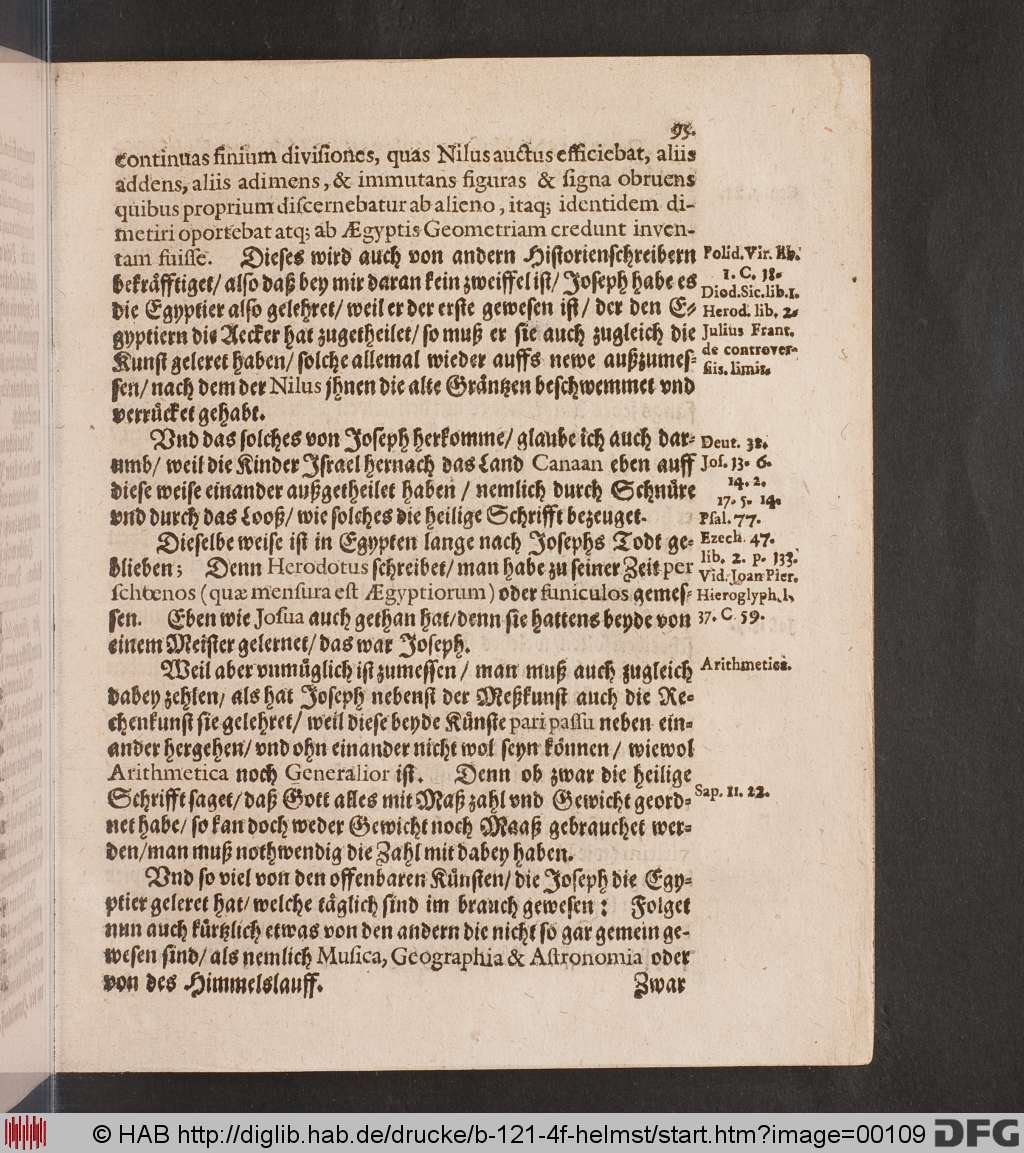 95.
continuas finium diviſiones, quas Nilus auctus efficiebat, aliis
addens, aliis adimens, & immutans figuras & ſigna obruens
quibus proprium diſcernebatur ab alieno, itaq; identidem di-
metiri oportebat atq; ab Ægyptis Geometriam credunt inven-
tam fuiſſe. Dieſes wird auch von andern Hiſtorienſchreibern
bekräfftiget/ alſo daß bey mir daran kein zweiffel iſt/ Joſeph habe es
die Egyptier alſo gelehret/ weil er der erſte geweſen iſt/ der den E-
gyptiern die Aecker hat zugetheilet/ ſo muß er ſie auch zugleich die
Kunſt geleret haben/ ſolche allemal wieder auffs newe außzumeſ-
ſen/ nach dem der Nilus jhnen die alte Gräntzen beſchwemmet vnd
verrücket gehabt.
Polid. Vir. lib.
1. C. 18.
Diod. Sic. lib. 1.
Herod. lib. 2.
Julius Front.
de controver-
ſiis. limit.
Vnd das ſolches von Joſeph herkomme/ glaube ich auch dar-
umb/ weil die Kinder Iſrael hernach das Land Canaan eben auff
dieſe weiſe einander außgetheilet haben / nemlich durch Schnüre
vnd durch das Looß/ wie ſolches die heilige Schrifft bezeuget.
Deut. 32.
Joſ. 13. 6.
14. 2.
17. 5. 14.
Pſal. 77.
Dieſelbe weiſe iſt in Egypten lange nach Joſephs Todt ge-
blieben; Denn Herodotus ſchreibet/ man habe zu ſeiner Zeit per
ſchœnos (quæ menſura eſt Ægyptiorum) oder funiculos gemeſ-
ſen. Eben wie Joſua auch gethan hat/ denn ſie hattens beyde von
einem Meiſter gelernet/ das war Joſeph.
Ezech. 47.
lib. 2. p. 133.
Vid. Joan Pier.
Hieroglyph. l.
37. C 59.
Weil aber vnmüglich iſt zumeſſen / man muß auch zugleich
dabey zehlen/ als hat Joſeph nebenſt der Meßkunſt auch die Re-
chenkunſt ſie gelehret/ weil dieſe beyde Künſte pari paſſu neben ein-
ander hergehen/ vnd ohn einander nicht wol ſeyn können / wiewol
Arithmetica noch Generalior iſt. Denn ob zwar die heilige
Schrifft ſaget/ daß Gott alles mit Maß zahl vnd Gewicht geord-
net habe/ ſo kan doch weder Gewicht noch Maaß gebrauchet wer-
den/ man muß nothwendig die Zahl mit dabey haben.
Arithmetica.
Sap. 11. 22.
Vnd ſo viel von den offenbaren Künſten/ die Joſeph die Egy-
ptier geleret hat/ welche täglich ſind im brauch geweſen: Folget
nun auch kürtzlich etwas von den andern die nicht ſo gar gemein ge-
weſen ſind/ als nemlich Muſica, Geographia & Aſtronomia oder
von des Himmelslauff. Zwar
© HAB http://diglib.hab.de/drucke/b-121-4f-helmst/start.htm?image=00109 DFG